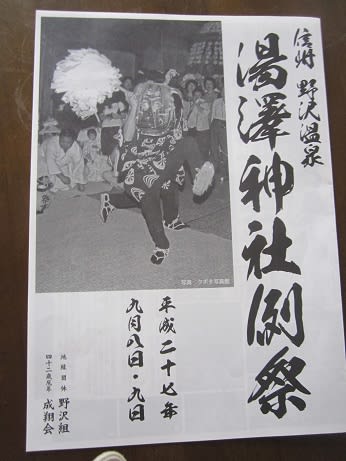 信州 野沢温泉
湯澤神社例祭
写真 クボタ写真館
平成二十七年
九月八日・九日
地縁団体 野沢組
四十二歳厄年 成翔会